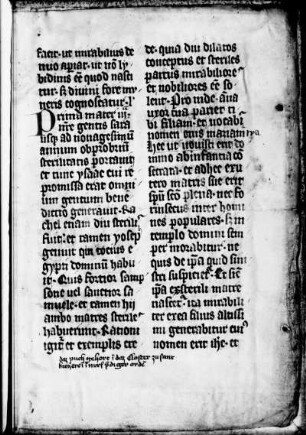 facit· ut mirabilius de
nuo apiat· ut non ly
bidinis ee quod nasci
tur· s; divini fore mu
neris cognoscatur· l
Prima mater
gentis Sara
usq; ad nonagesimum
annum obprobrium
sterilitatis portavit
et tunc ysaac cui re
promissa erat omni
um gentium bene
dictio generavit· Ra
chel etiam diu sterilis
fuit· et tamen yosep
genuit qui tocius e
gypti dominum habu
it· Quis fortior samp
sone vel sanctior sa
muele· et tamen hij
ambo matres steriles
habuerunt· Rationi
igit et exemplis cre
de· quia diu dilatos
conceptus et steriles
partus mirabiliores
et nobiliores ee so
lent· Proinde anna
uxor tua pariet ti
bi filiam· et vocabis
nomen eius mariam
Hec ut vovisti erit do
mino ab infantia con
secrata· et adhec ex u
tero matris sue erit
spu sco plena· nec fo
rinsecus inter homi
nes populares· s; in
templo domini sem
per morabitur· ne
quid de ipa quid sinis
tri suspicet· Et sic
ipa ex sterili matre
nascet· ita mirabili
ter ex ea filius altissi
mi generabitur cui
nomen erit ihc· et